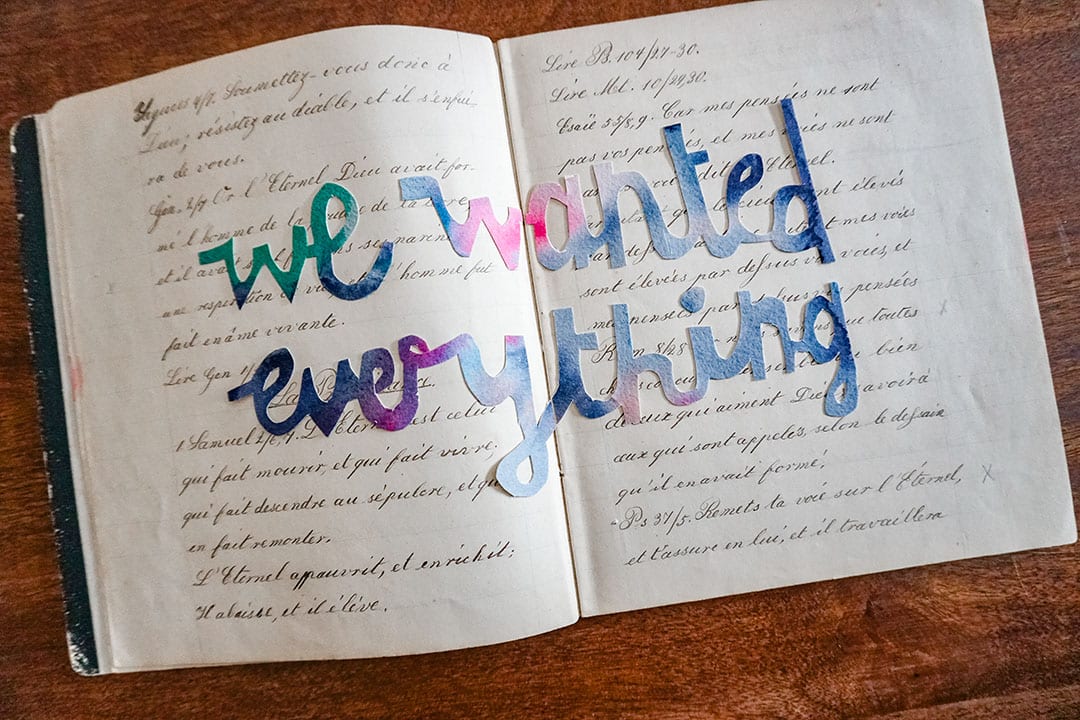 we wanted
everything
Jaques 4/7. Soumettez-vous donc à
Dieu; résistez au diable, et il s'enfui-
ra de vous.
Gen. 2/7 Or l'Eternel Dieu avait for-
mé l'homme de la de la
et il avait
une respiration l'homme fut
fait en âme vivante.
Lire Gen
1 Samuel 2/6,7. L'Eternel est celui
qui fait mourir et qui fait vivre.
qui fait descendre au sépulcre, et qui
en fait remonter.
L'Eternel appauvrit, et enrichit;
Il abaisse, et il élève.
Lire Ps. 104/27-30.
Lire Mt. 10/29,30.
Esaïe 55/8,9. Car mes pensées ne sont
pas vos pensées, et mes voies ne sont
pas l'Eternel.
élevés
mes voies
sont élevés par dessus vos voies, et
mes pensées par dessus vos pensées
Rom. 8/28 que toutes
choses bien
de ceux qui aiment Dieu, savoir à
ceux qui sont appelés, selon le dessein
qu'il en avait formé.
Ps 37/5. Remets ta voie sur l'Eternel,
et t'assure en lui, et il travaillera